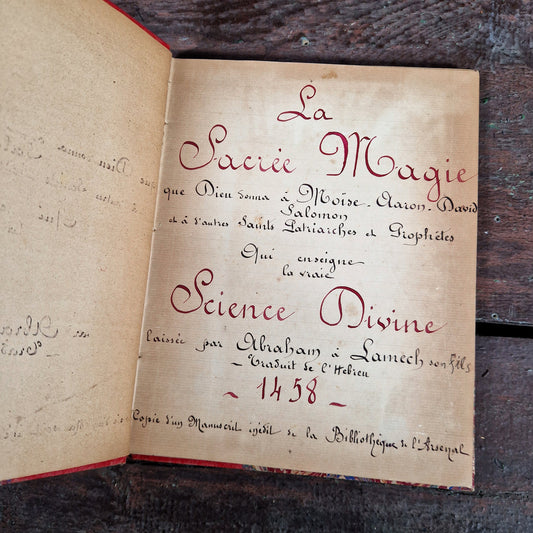 La
Sacrée Magie
que Dieu donna à Moïse - Aaron - David
Salomon
et à d'autres Saints Patriarches et Prophètes
Qui enseigne
la vraie
Science Divine
laissée par Abraham à Lamech son fils
- Traduit de l'Hébreu
- 1458 -
Copie d'un Manuscrit inédit de la Bibliothèque de l'Arsenal